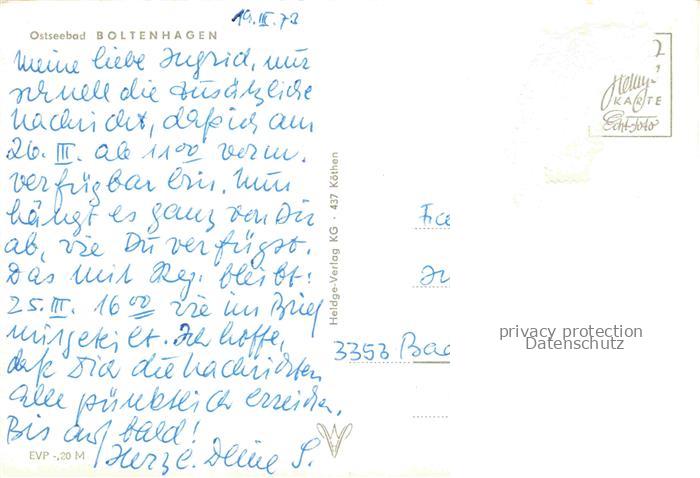 19.III.73
Ostseebad BOLTENHAGEN
Meine liebe Ingrid, nur
schnell die zusätzliche
Nachricht, daß ich am
26. III. ab 11 00 vorm.
verfügbar bin. Nun
hängt es ganz von Dir
ab, wie Du verfügst.
Das mit Reg. bleibt:
25. III. 16 00 wie im Brief
mitgeteilt. Ich hoffe,
daß Dich die Nachrichten
alle pünktlich erreichen.
Bis auf bald!
Herzl. Deine S.
EVP -,20 M
Heldge-Verlag KG · 437 Köthen
Heldge-
KARTE
Echt-Foto
3353 Bad
privacy protection
Datenschutz